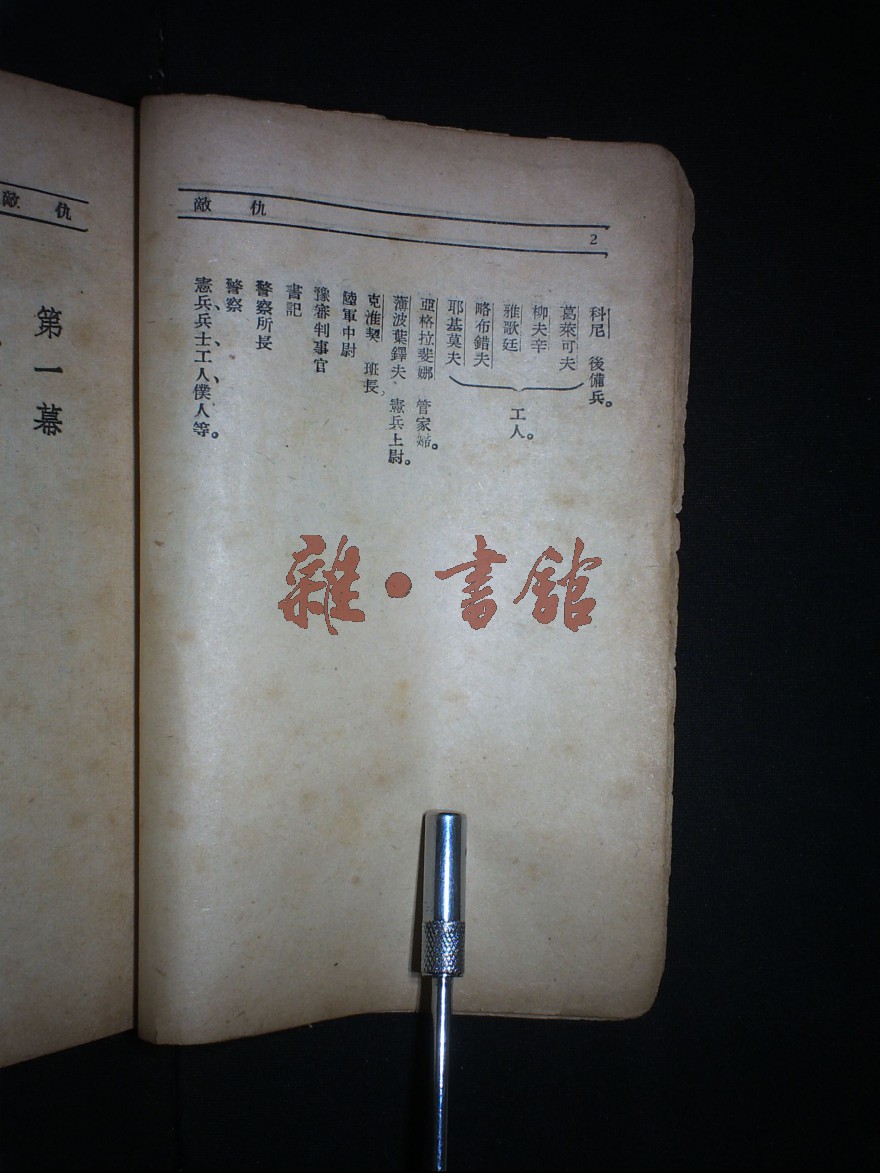 仇敵
2
科尼 後備兵。
葛萊可夫
柳夫辛
雅歌廷
略布錯夫
耶基莫夫
工人。
亞格拉斐娜 管家婦。
薄波葉鐸夫 憲兵上尉。
克淮契 班長、
陸軍中尉
豫審判事官
書記
警察所長
警察
憲兵、兵士、工人、僕人、等。
仇敵
第一幕
雜·書館